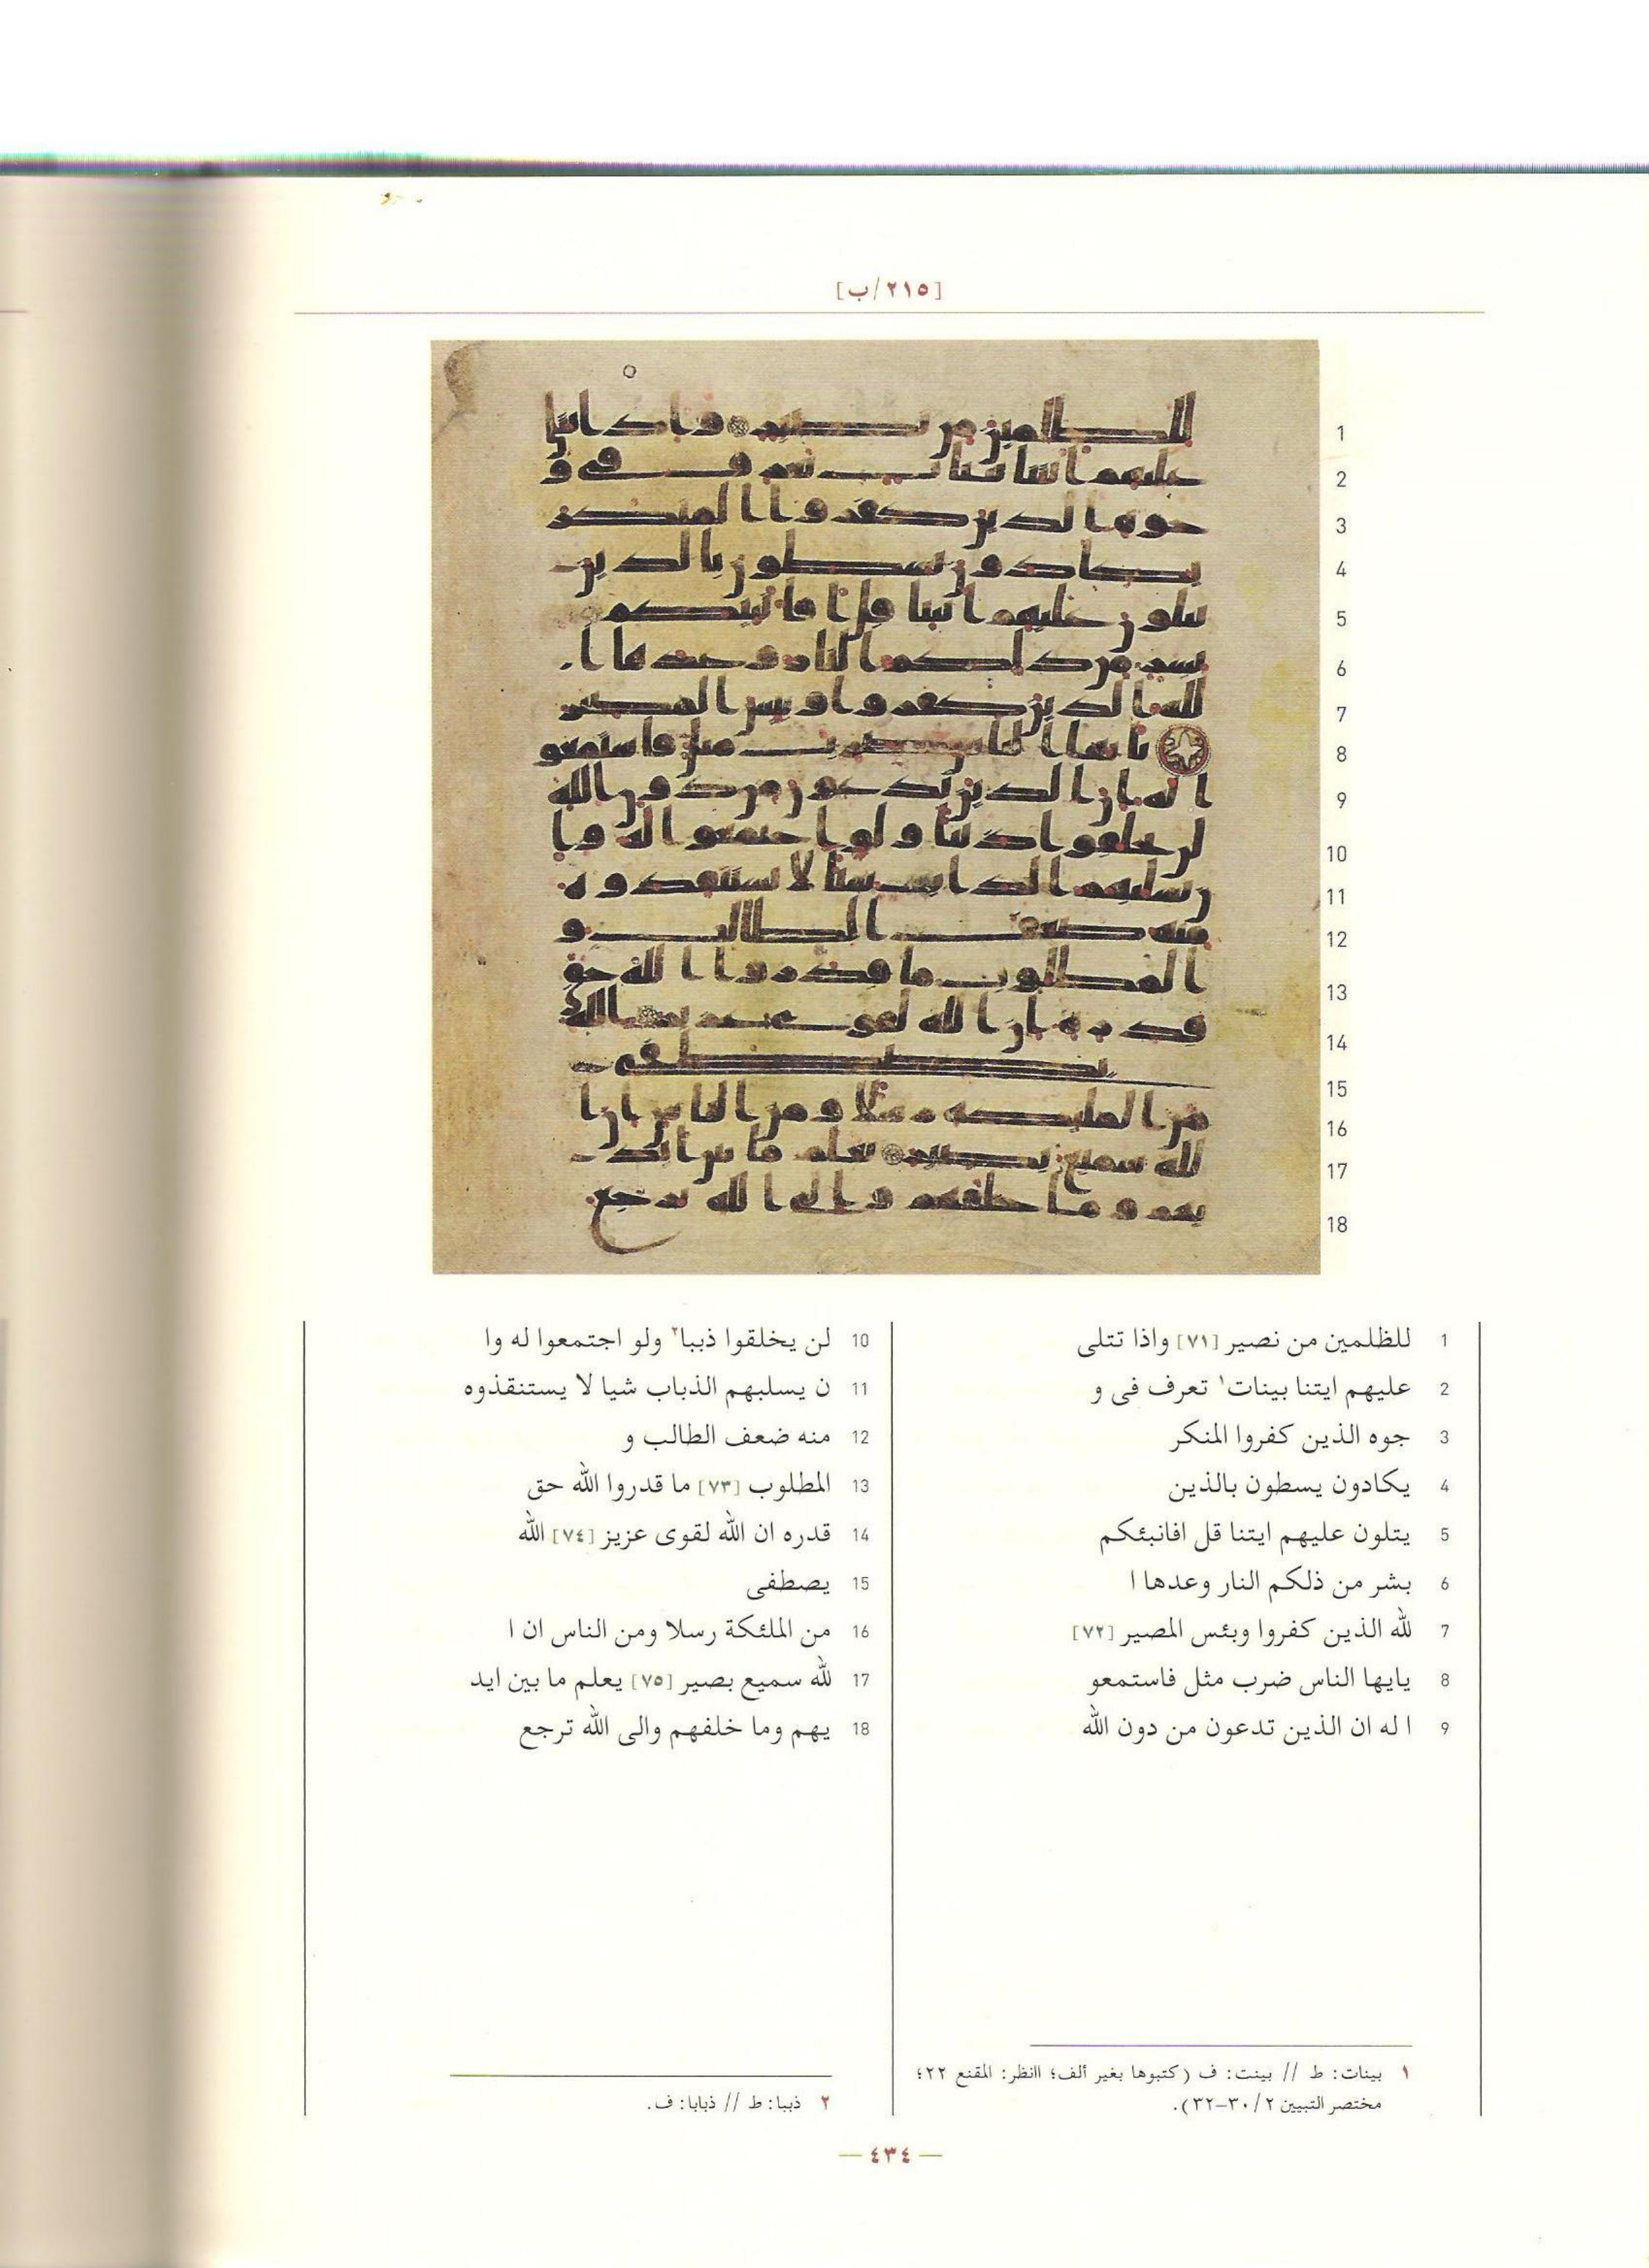 [٢١٥/ب]
1 للظلمين من نصير [٧١] واذا تتلى
2 عليهم ايتنا بينات١ تعرف فى و
3 جوه الذين كفروا المنكر
4 يكادون يسطون بالذين
5 يتلون عليهم ايتنا قل افانبئكم
6 بشر من ذلكم النار وعدها ا
7 لله الذين كفروا وبئس المصير [٧٢]
8 يايها الناس ضرب مثل فاستمعو
9 ا له ان الذين تدعون من دون الله
10 لن يخلقوا ذببا٢ ولو اجتمعوا له وا
11 ن يسلبهم الذباب شيا لا يستنقذوه
12 منه ضعف الطالب و
13 المطلوب [٧٣] ما قدروا الله حق
14 قدره ان الله لقوى عزيز [٧٤] الله
15 يصطفى
16 من الملئكة رسلا ومن الناس ان ا
17 لله سميع بصير [٧٥] يعلم ما بين ايد
18 يهم وما خلفهم والى الله ترجع
١ بينات: ط // بينت: ف (كتبوها بغير ألف؛ اانظر: المقنع ٢٢؛
مختصر التبيين ٢/ ٣٠–٣٢).
٢ ذببا: ط // ذبابا: ف.
— ٤٣٤ —